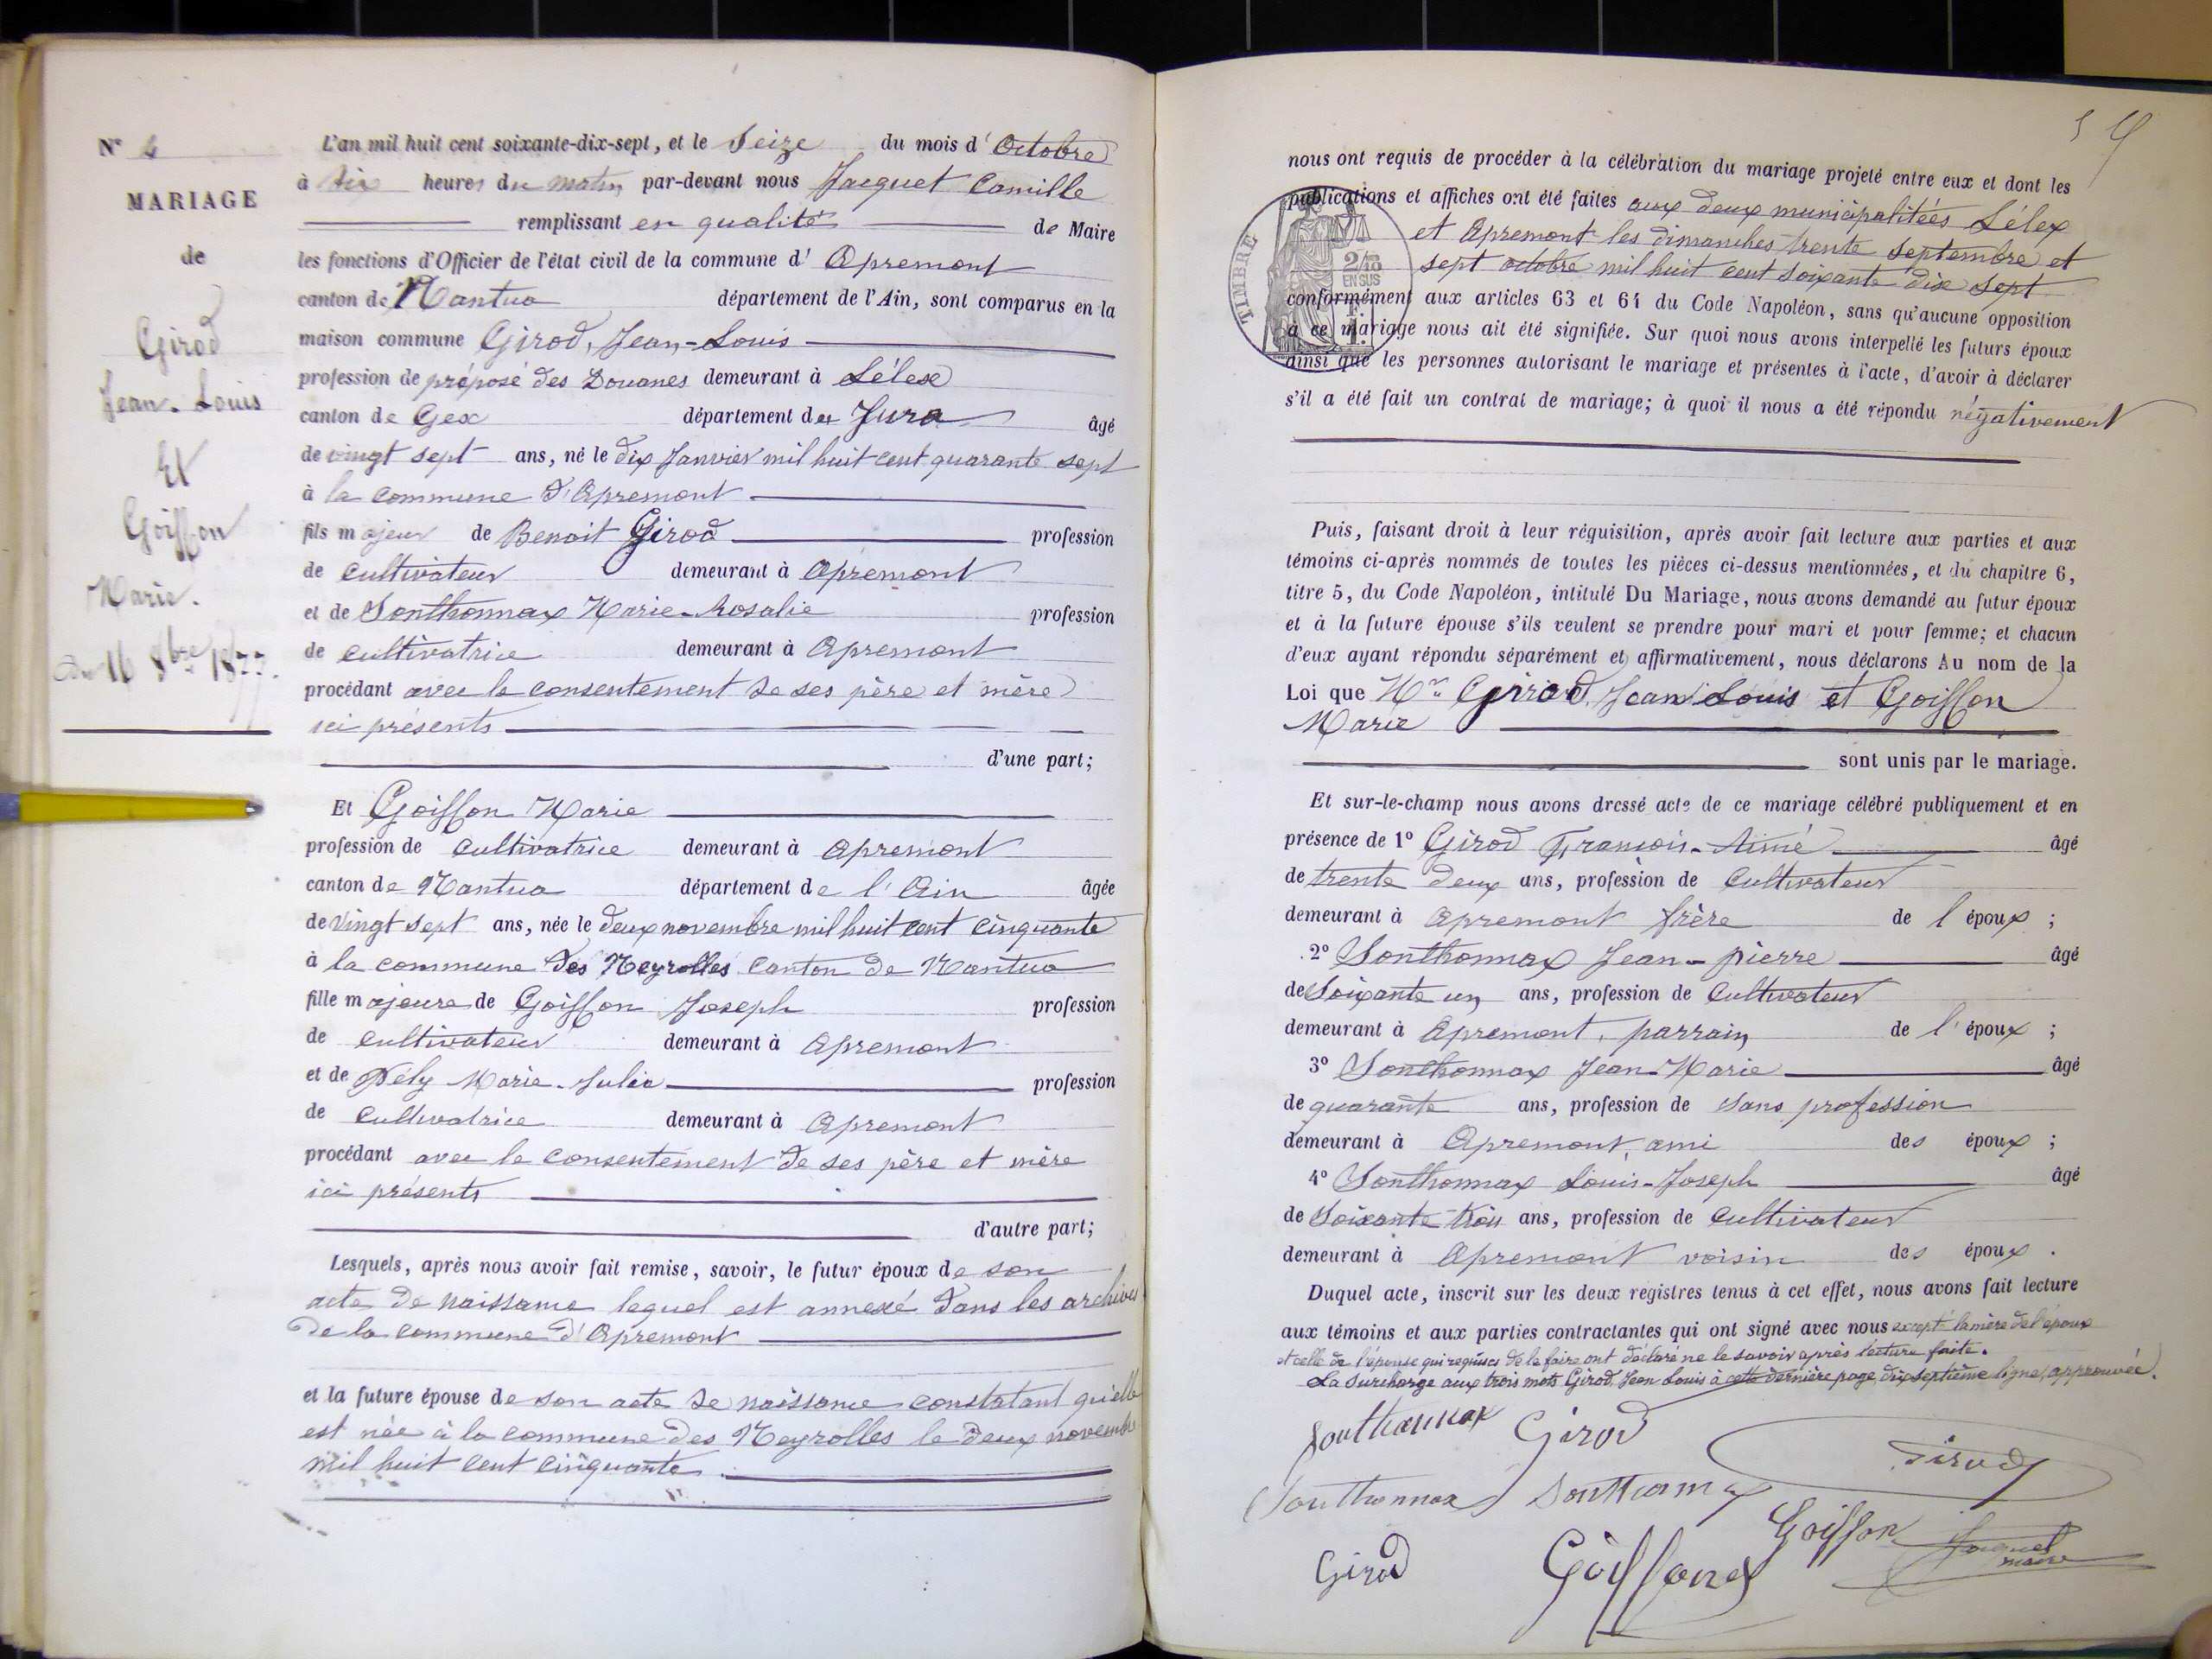 N° 4
MARIAGE
de
Girod
Jean-Louis
Et
Goiffon
Marie.
Du 16 8bre 1877.
L'an mil huit cent soixante-dix-sept, et le Seize du mois d' Octobre
à dix heures du matin par-devant nous Jacquet Camille
remplissant en qualité de Maire
les fonctions d'Officier de l'état civil de la commune d' Apremont
canton de Nantua département de l'Ain, sont comparus en la
maison commune Girod, Jean-Louis
profession de préposé des Douanes demeurant à Lélex
canton de Gex département du Jura âgé
de vingt sept ans, né le dix Janvier mil huit cent quarante sept
à la commune d'Apremont
fils majeur de Benoit Girod profession
de cultivateur demeurant à Apremont
et de Sonthonnax Marie-Rosalie profession
de cultivatrice demeurant à Apremont
procédant avec le consentement de ses père et mère
ici présents
d'une part;
Et Goiffon Marie
profession de cultivatrice demeurant à Apremont
canton de Nantua département de l'Ain âgée
de vingt sept ans, née le deux novembre mil huit cent cinquante
à la commune des Neyrolles canton de Nantua
fille majeure de Goiffon Joseph profession
de cultivateur demeurant à Apremont
et de Pély Marie-Julie profession
de cultivatrice demeurant à Apremont
procédant avec le consentement de ses père et mère
ici présents
d'autre part;
Lesquels, après nous avoir fait remise, savoir, le futur époux de son
acte de naissance lequel est annexé dans les archives
de la commune d'Apremont
et la future épouse de son acte de naissance constatant qu'elle
est née à la commune des Neyrolles le deux novembre
mil huit cent cinquante.
nous ont requis de procéder à la célébration du mariage projeté entre eux et dont les
publications et affiches ont été faites aux deux municipalitées Lélex
et Apremont les dimanches trente septembre et
sept octobre mil huit cent soixante dix sept
TIMBRE
2/10
EN SUS
conformément aux articles 63 et 64 du Code Napoléon, sans qu'aucune opposition
à ce mariage nous ait été signifiée. Sur quoi nous avons interpellé les futurs époux
ainsi que les personnes autorisant le mariage et présentes à l'acte, d'avoir à déclarer
s'il a été fait un contrat de mariage; à quoi il nous a été répondu négativement
Puis, faisant droit à leur réquisition, après avoir fait lecture aux parties et aux
témoins ci-après nommés de toutes les pièces ci-dessus mentionnées, et du chapitre 6,
titre 5, du Code Napoléon, intitulé Du Mariage, nous avons demandé au futur époux
et à la future épouse s'ils veulent se prendre pour mari et pour femme; et chacun
d'eux ayant répondu séparément et affirmativement, nous déclarons Au nom de la
Loi que Mr Girod, Jean Louis et Goiffon
Marie
sont unis par le mariage.
Et sur-le-champ nous avons dressé acte de ce mariage célébré publiquement et en
présence de 1° Girod François-Aimé âgé
de trente deux ans, profession de cultivateur
demeurant à Apremont frère de l'époux ;
2° Sonthonnax Jean-pierre âgé
de Soixante un ans, profession de cultivateur
demeurant à Apremont, parrain de l'époux ;
3° Sonthonnax Jean-Marie âgé
de quarante ans, profession de sans profession
demeurant à Apremont, ami des époux ;
4° Sonthonnax Louis-Joseph âgé
de Soixante trois ans, profession de cultivateur
demeurant à Apremont voisin des époux .
Duquel acte, inscrit sur les deux registres tenus à cet effet, nous avons fait lecture
aux témoins et aux parties contractantes qui ont signé avec nous excepté la mère de l'époux
et celle de l'épouse qui requises de le faire ont déclaré ne le savoir après lecture faite.
La surcharge aux trois mots Girod, Jean Louis à cette dernière page, dix septième ligne, approuvée.
Sonthonnax Girod Girod
Sonthonnax Sonthonnax
Goiffon Jacquet
maire
Girod Goiffon